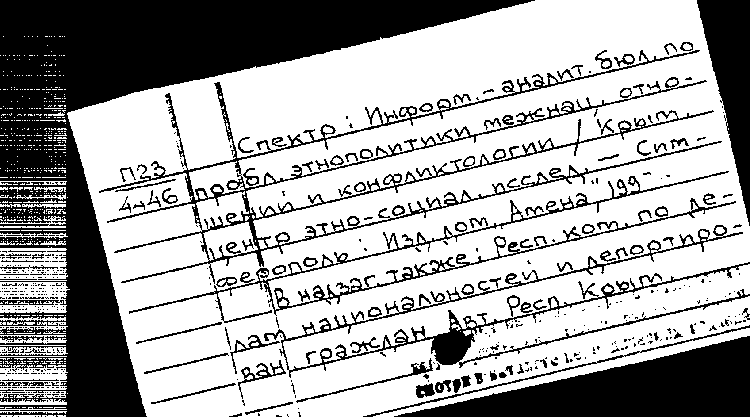 П23
4-46
Спектр: Информ.-аналит. бюл. по
пробл. этнополитики, межнац. отно-
шений и конфликтологии / Крым.
центр этно-социал. исслед. — Сим-
ферополь: Изд. дом „Амена", 199-.
В надзаг. также: Респ. ком. по де-
лам национальностей и депортиро-
ван. граждан Авт. Респ. Крым.
смотри в